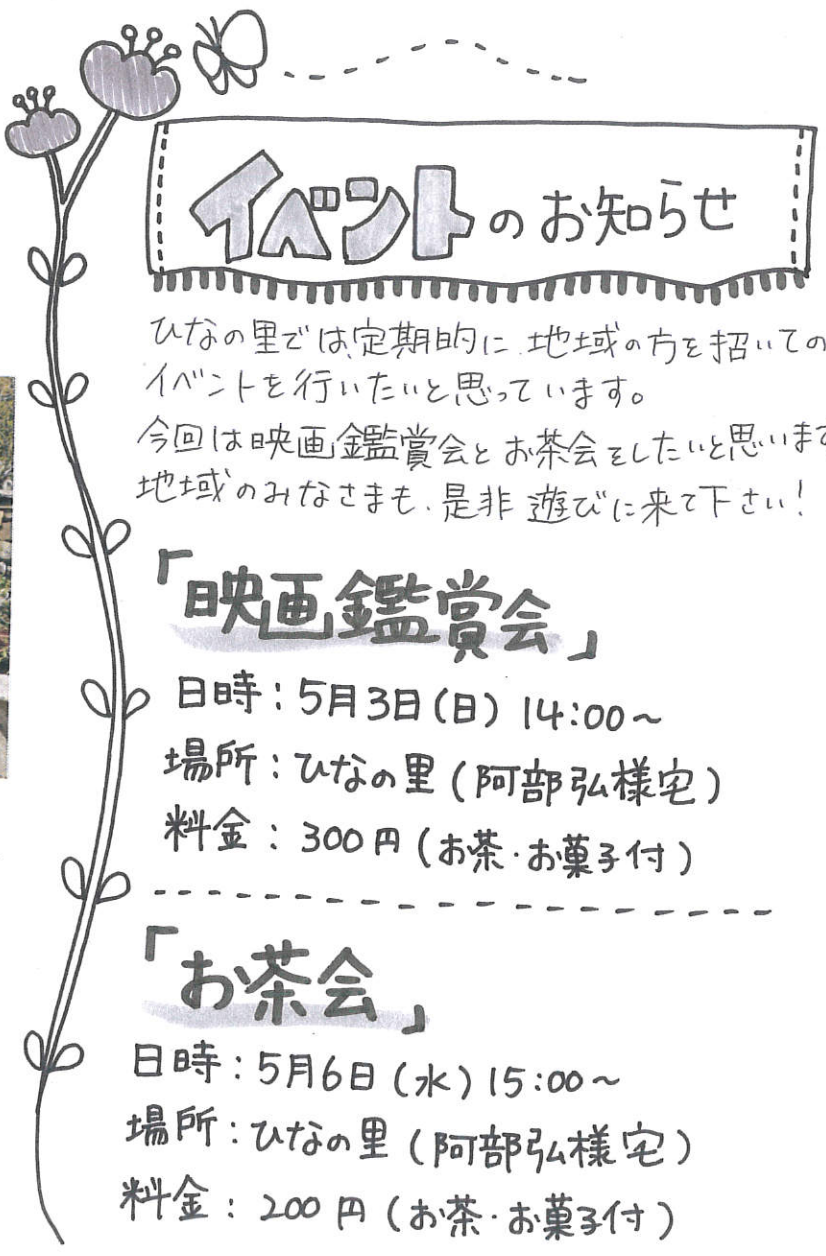 イベントのお知らせ
ひなの里では、定期的に地域の方を招いての
イベントを行いたいと思っています。
今回は映画鑑賞会とお茶会をしたいと思いま
地域のみなさまも、是非遊びに来て下さい!
「映画鑑賞会」
日時:5月3日(日)14:00~
場所:ひなの里(阿部弘様宅)
料金:300円(お茶・お菓子付)
「お茶会」
日時:5月6日(水)15:00~
場所:ひなの里(阿部弘様宅)
料金:200円(お茶・お菓子付)